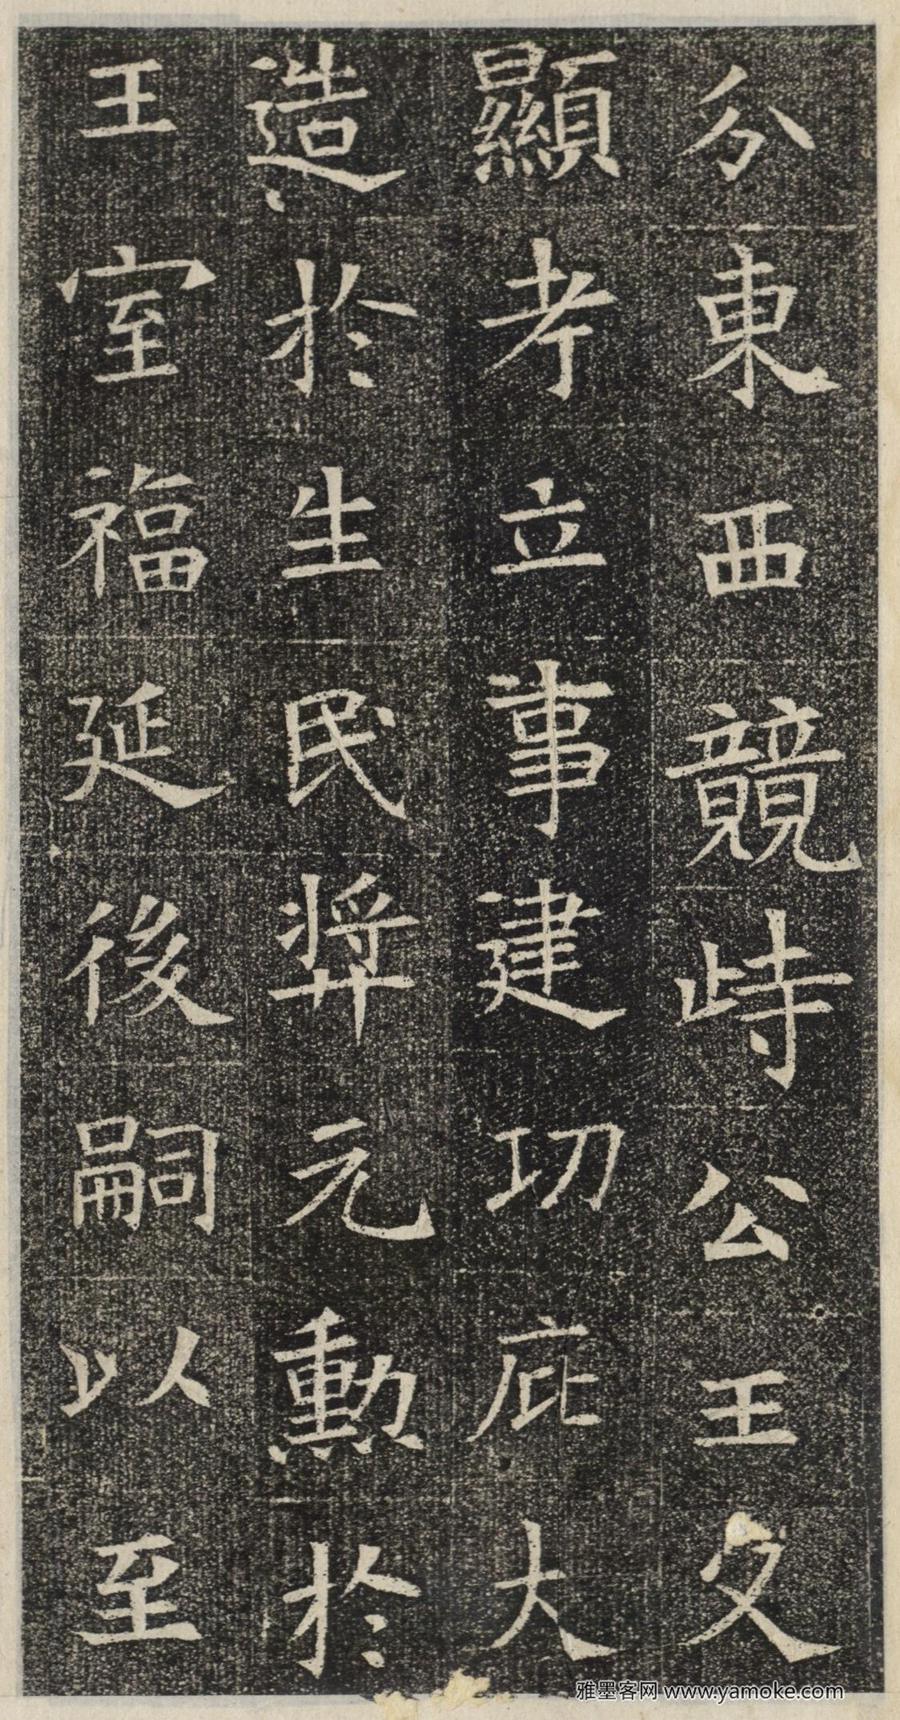 分東西競峙公王文
顯考立事建功庇大
造於生民奬元勳於
王室福延後嗣以至
雅墨客网 www.yamoke.com